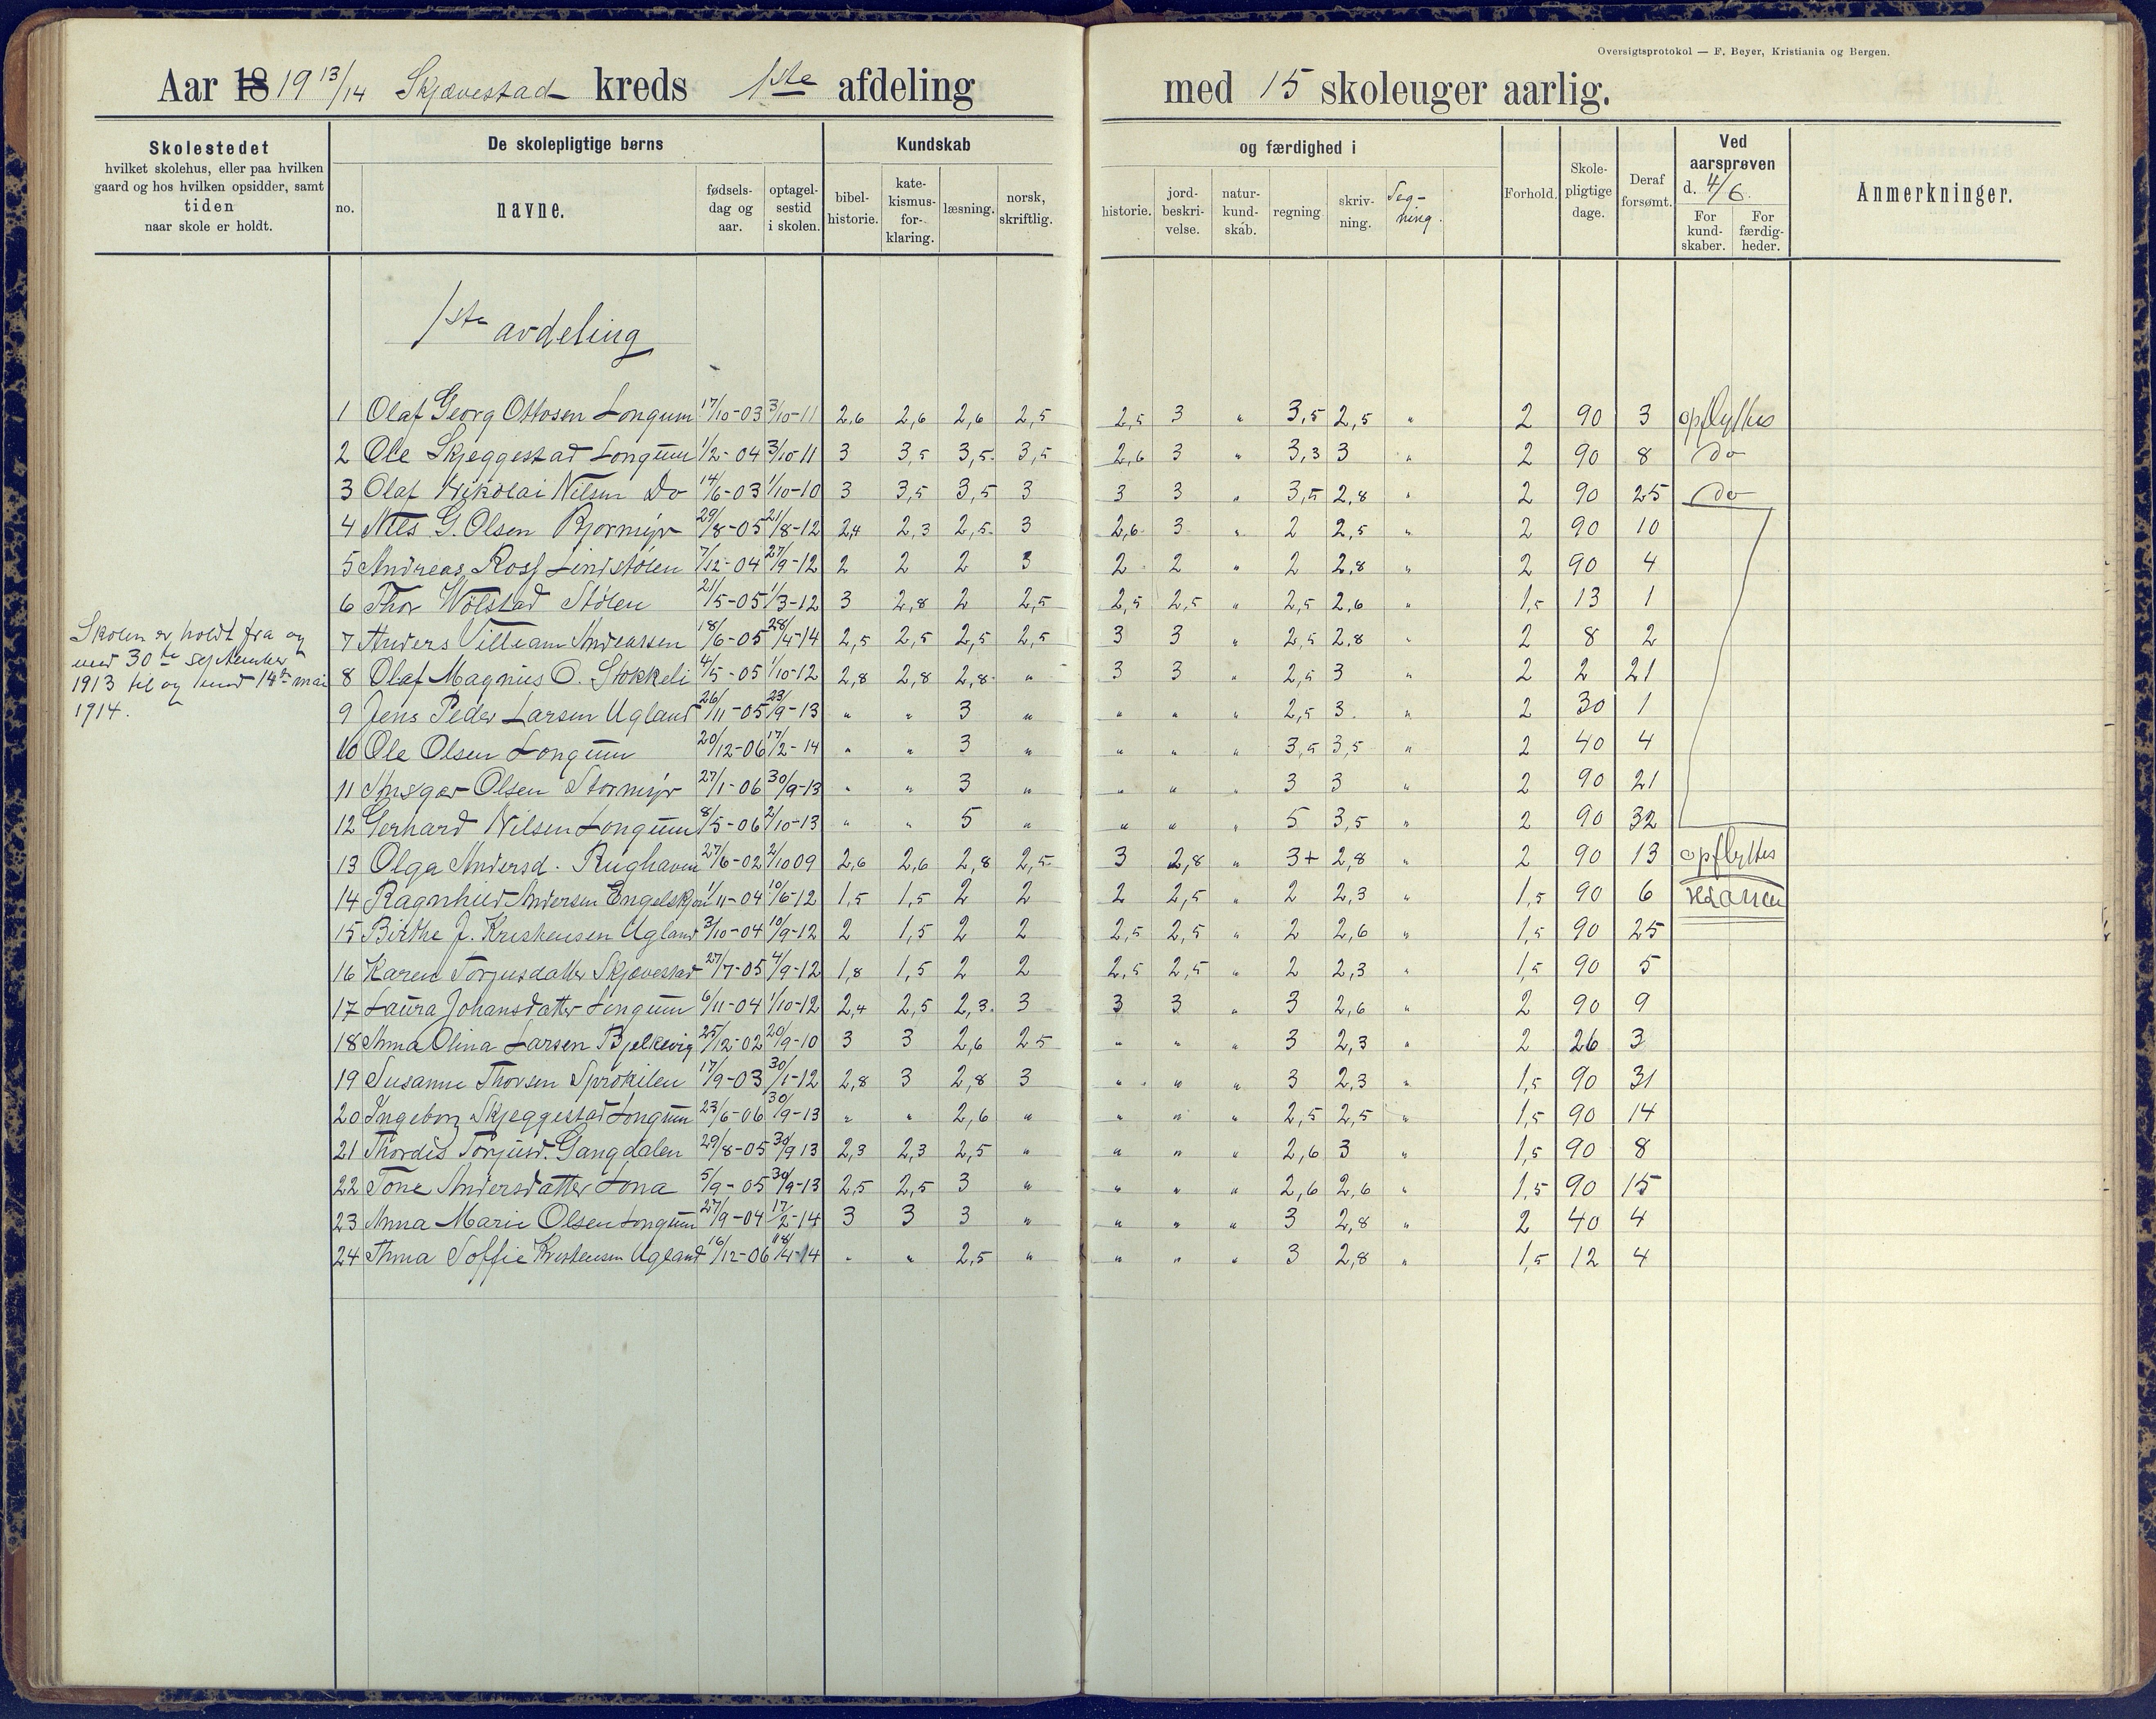 Oversigtsprotokol — F. Beyer, Kristiania og Bergen.
Aar 18 19 13/14 Skjævestad kreds 1ste afdeling med 15 skoleuger aarlig.
Skolestedet
hvilket skolehus, eller paa hvilken
gaard og hos hvilken opsidder, samt
tiden
naar skole er holdt.
De skolepligtige børns
no.
navne.
fødsels-
dag og
aar.
optagel-
sestid
i skolen.
Kundskab
bibel-
historie.
kate-
kismus-
for-
klaring.
læsning.
norsk,
skriftlig.
og færdighed i
historie.
jord-
beskri-
velse.
natur-
kund-
skab.
regning
skriv-
ning.
Teg-
ning.
Forhold.
Skole-
pligtige
dage.
Deraf
forsømt.
Ved
aarsprøven
d. 4/6.
For
kund-
skaber.
For
færdig-
heder.
Anmerkninger.
1ste avdeling
Skolen er holdt fra og
med 30te september
1913 til og med 14de mai
1914.
1 Olaf Georg Ottosen Longum 17/10-03 3/10-11 2,6 2,6 2,6 2,5 2,5 3 " 3,5 2,5 " 2 90 3 opflyttes
2 Ole Skjeggestad Longum 1/2-04 3/10-11 3 3,5 3,5 3,5 2,6 3 " 3,3 3 " 2 90 8 do
3 Olaf Nikolai Nilsen Do 14/6-03 1/10-10 3 3,5 3,5 3 3 3 " 3,5 2,8 " 2 90 25 do
4 Nils G. Olsen 29/8-05 21/8-12 2,4 2,3 2,5 3 2,6 3 " 2 2,5 " 2 90 10
5 Andreas Rosf Lindstølen 7/12-04 27/9-12 2 2 2 3 2 2 " 2 2,8 " 2 90 4
6 Thor Wölstad Stölen 21/5-05 1/3-12 3 2,8 2 2,5 2,5 2,5 " 2,5 2,6 " 1,5 13 1
7 Anders Villiam Andreassen 18/6-05 28/4-14 2,5 2,5 2,5 2,5 3 3 " 2,5 2,8 " 2 8 2
8 Olaf Magnus O. Stokkeli 4/5-05 1/10-12 2,8 2,8 2,8 " 3 3 " 2,5 3 " 2 2 21
9 Jens Peder Larsen Ugland 26/11-05 23/9-13 " " 3 " " " " 2,5 3 " 2 30 1
10 Ole Olsen Longum 20/12-06 17/2-14 " " 3 " " " " 3,5 3,5 " 2 40 4
11 Ansgar Olsen Stormyr 27/1-06 30/9-13 " " 3 " " " " 3 3 " 2 90 21
12 Gerhard Nilsen Longum 8/5-06 2/10-13 " " 5 " " " " 5 3,5 " 2 90 32
13 Olga Andersd. Rughaven 27/6-02 2/10 09 2,6 2,6 2,8 2,5 3 2,8 " 3+ 2,8 " 2 90 13 opflyttes
14 Ragnhild Andersen 1/11-04 10/6-12 1,5 1,5 2 2 2 2,5 " 2 2,3 " 1,5 90 6
15 Birthe J. Kristensen Ugland 3/10-04 10/9-12 2 1,5 2 2 2,5 2,5 " 2 2,6 " 1,5 90 25
16 Karen Torjusdatter Skjævestad 27/7-05 4/9-12 1,8 1,5 2 2 2,5 2,5 " 2 2,3 " 1,5 90 5
17 Laura Johansdatter Longum 6/11-04 1/10-12 2,4 2,5 2,3 3 3 3 " 3 2,6 " 2 90 9
18 Anna Olina Larsen Bjelkevig 25/12-02 20/9-10 3 3 2,6 2 5 " " " 3 2,3 " 2 26 3
19 Susanne Thorsen Sprokilen 17/9-03 30/1-12 2,8 3 2,8 3 " " " 3 2,3 " 1,5 90 31
20 Ingeborg Skjeggestad Longum 23/6-06 30/9-13 " " 2,6 " " " " 2,5 2,5 " 1,5 90 14
21 Thordis Torjusd. Gangdalen 29/8-05 30/9 13 2,3 2,3 2,5 " " " " 2,6 3 " 1,5 90 8
22 Tone Andersdatter Lona 5/9-05 30/9-13 2,5 2,5 3 " " " " 2,6 2,6 " 1,5 90 15
23 Anna Marie Olsen Longum 27/9-04 17/2-14 3 3 3 " " " " 3 2,8 " 2 40 4
24 Anna Soffie Kristensen Ugland 16/12-06 18/4-14 " " 2,5 " " " " 3 2,8 " 1,5 12 4